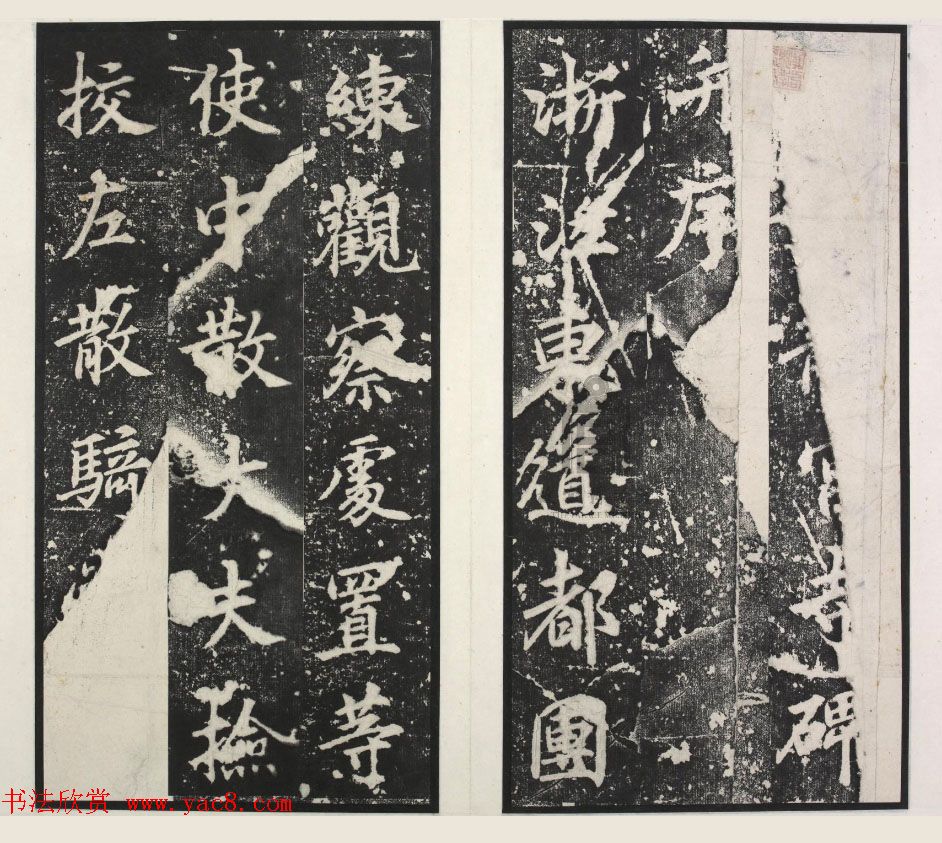 寺碑
并序
浙江東道都團
練觀察處置等
使中散大夫撿
挍左散騎
书法欣赏 www.yac8.com